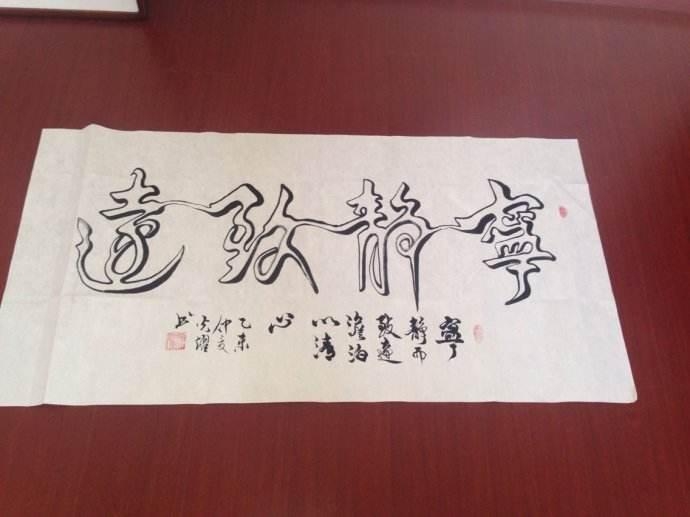 寧靜致遠
寧
靜而
致遠
澹泊
以清
心
乙未
仲夏
光耀
书